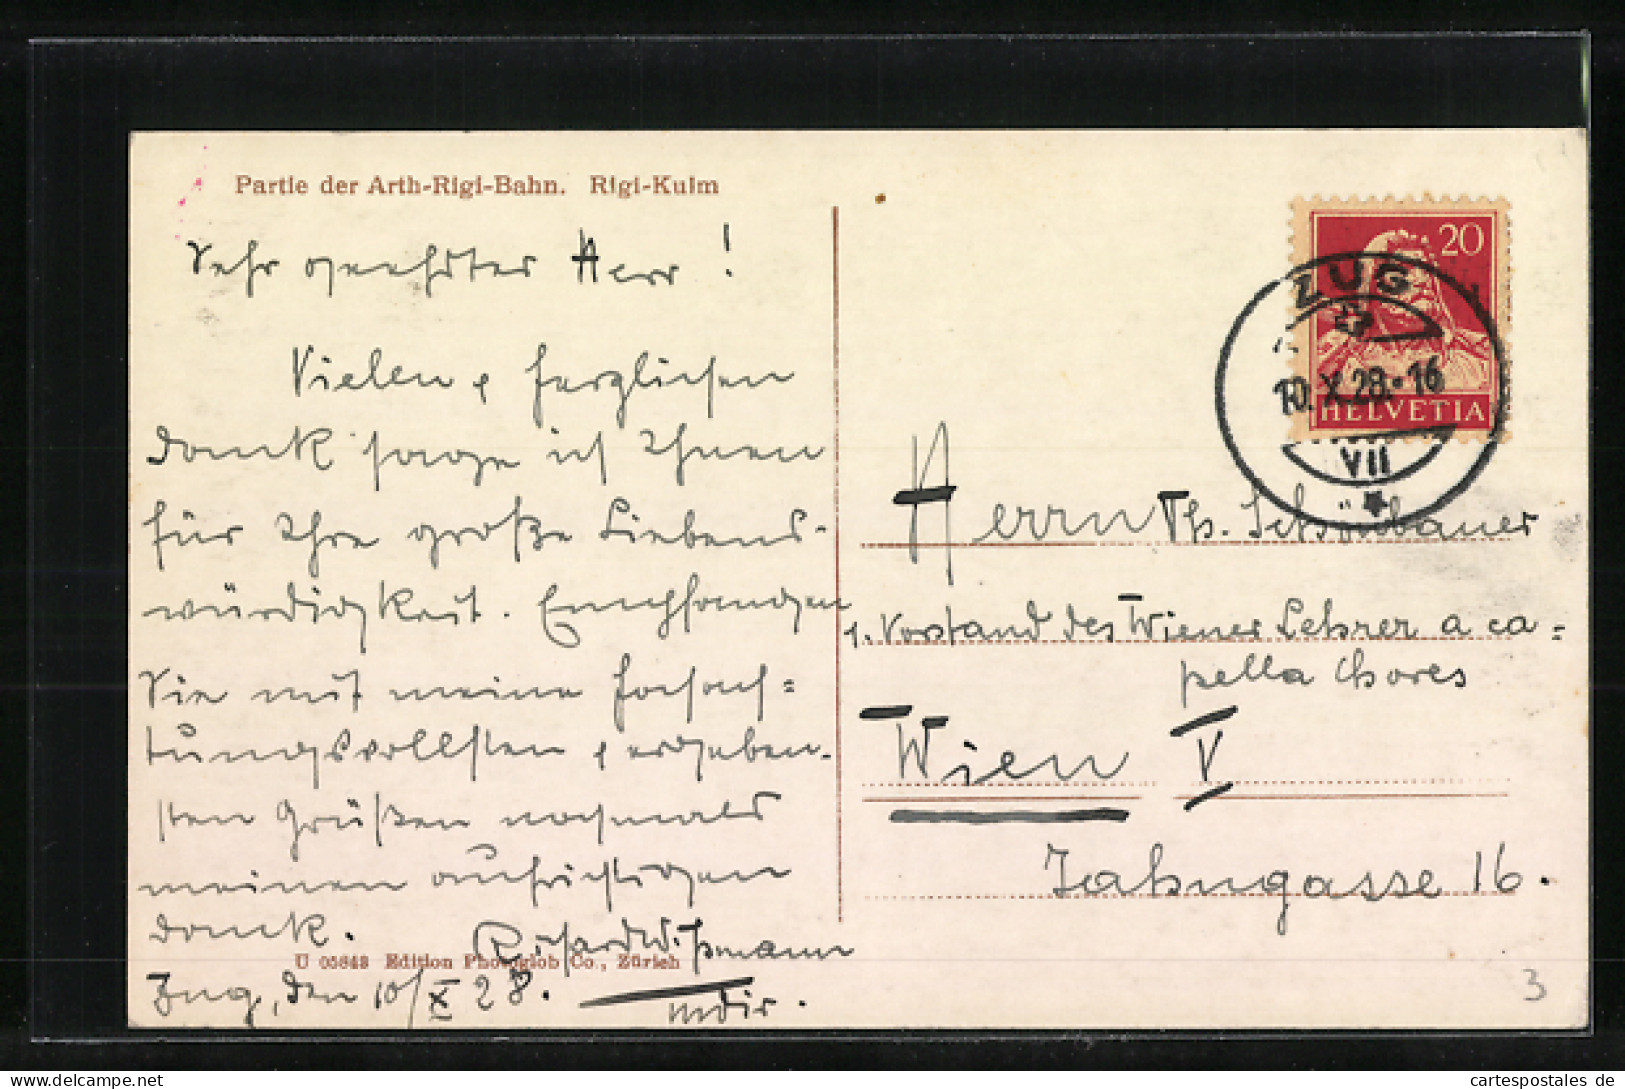 Partie der Arth-Rigi-Bahn. Rigi-Kulm
Sehr geehrter Herr !
Vielen & herzlichen
Dank sage ich Ihnen
für Ihre große Liebens-
würdigkeit. Empfangen
Sie mit meine hochach=
tungsvollsten & ergeben-
sten Grüßen nochmals
meinen aufrichtigen
Dank.
Richard Wißmann
Mdir.
Zug, den 10/X 28.
U 05843 Edition Photoglob Co., Zürich
20
HELVETIA
ZUG
10. X. 28. - 16
VII
Herrn Th. Schönbauer
1. Vorstand des Wiener Lehrer a ca=
pella Chores
Wien V
Jahngasse 16.
3
cartespostales de